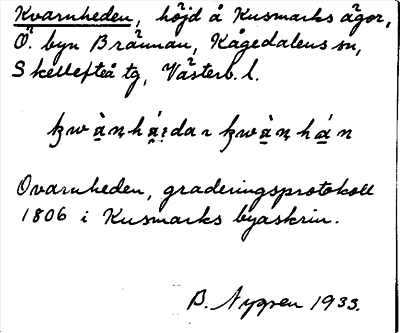 Kvarnheden, höjd å Kusmarks ägor,
Ö. byn Brännan, Kågedalens sn,
Skellefteå tg, Västerb. l.
Qvarnheden, graderingsprotokoll
1806 i Kusmarks byaskrin.
B. Nygren 1933.